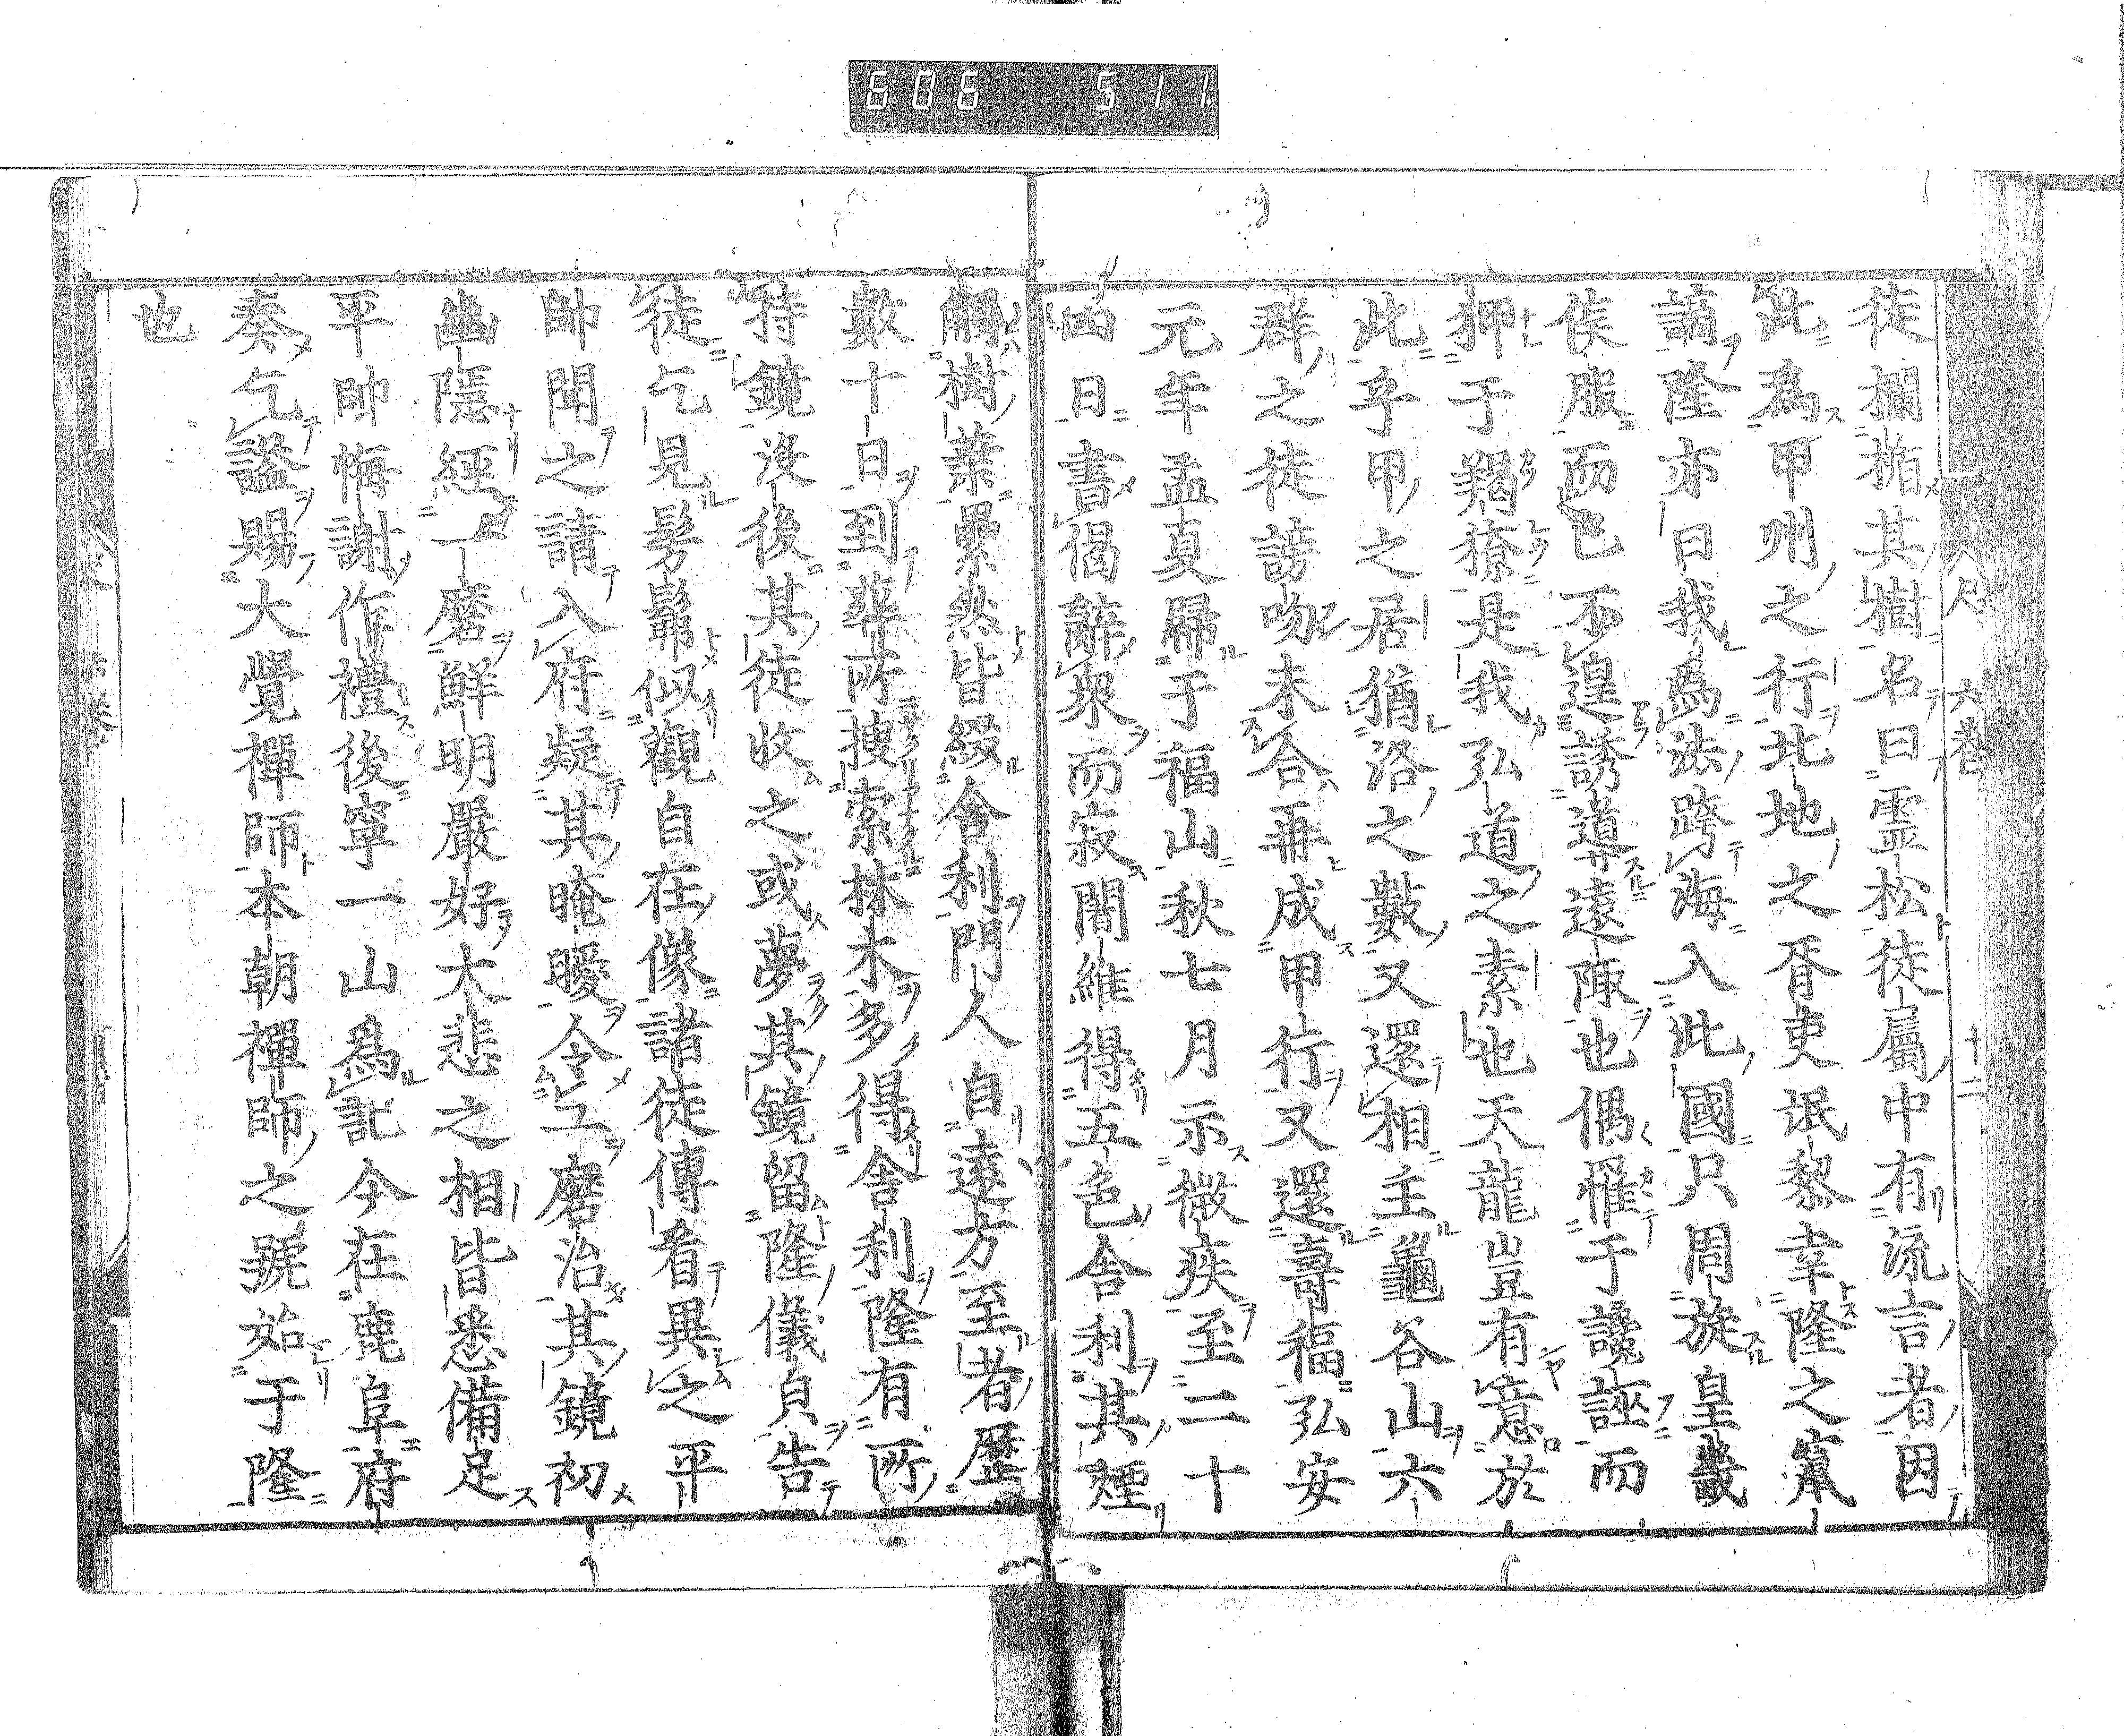 606 511
六巻
十二
徒欄楯其樹名曰靈松徒屬中有流言者因
此爲甲州之行北地之胥吏氓黎幸隆之竄
謫隆亦曰我爲法跨海入此國只周旋皇畿
侯服而已不遑誘導遠陬也偶罹于讒誣而
狎于羯獠是我弘道之素也天龍豈有意於
此乎甲之居猶洛之數又還相主龜谷山六
群之徒謗吻未合再成甲行又還壽福弘安
元年孟夏歸于福山秋七月示微疾至二十
四日書偈辭衆而寂闍維得五色舍利其煙
觸樹葉纍然皆綴舍利門人自遠方至者歷
數十日到葬所搜索林木多得舍利隆有所
持鏡沒後其徒收之或夢其鏡留隆儀貞告
徒乞見髣髴似觀自在像諸徒傳看異之平
帥聞之請入府疑其晻曖令工磨治其鏡初
幽隱經一磨鮮明嚴好大悲之相皆悉備足
平帥悔謝作禮後寧一山爲記今在鹿阜府
奏乞謚賜大覺禪師本朝禪師之號始于隆
也